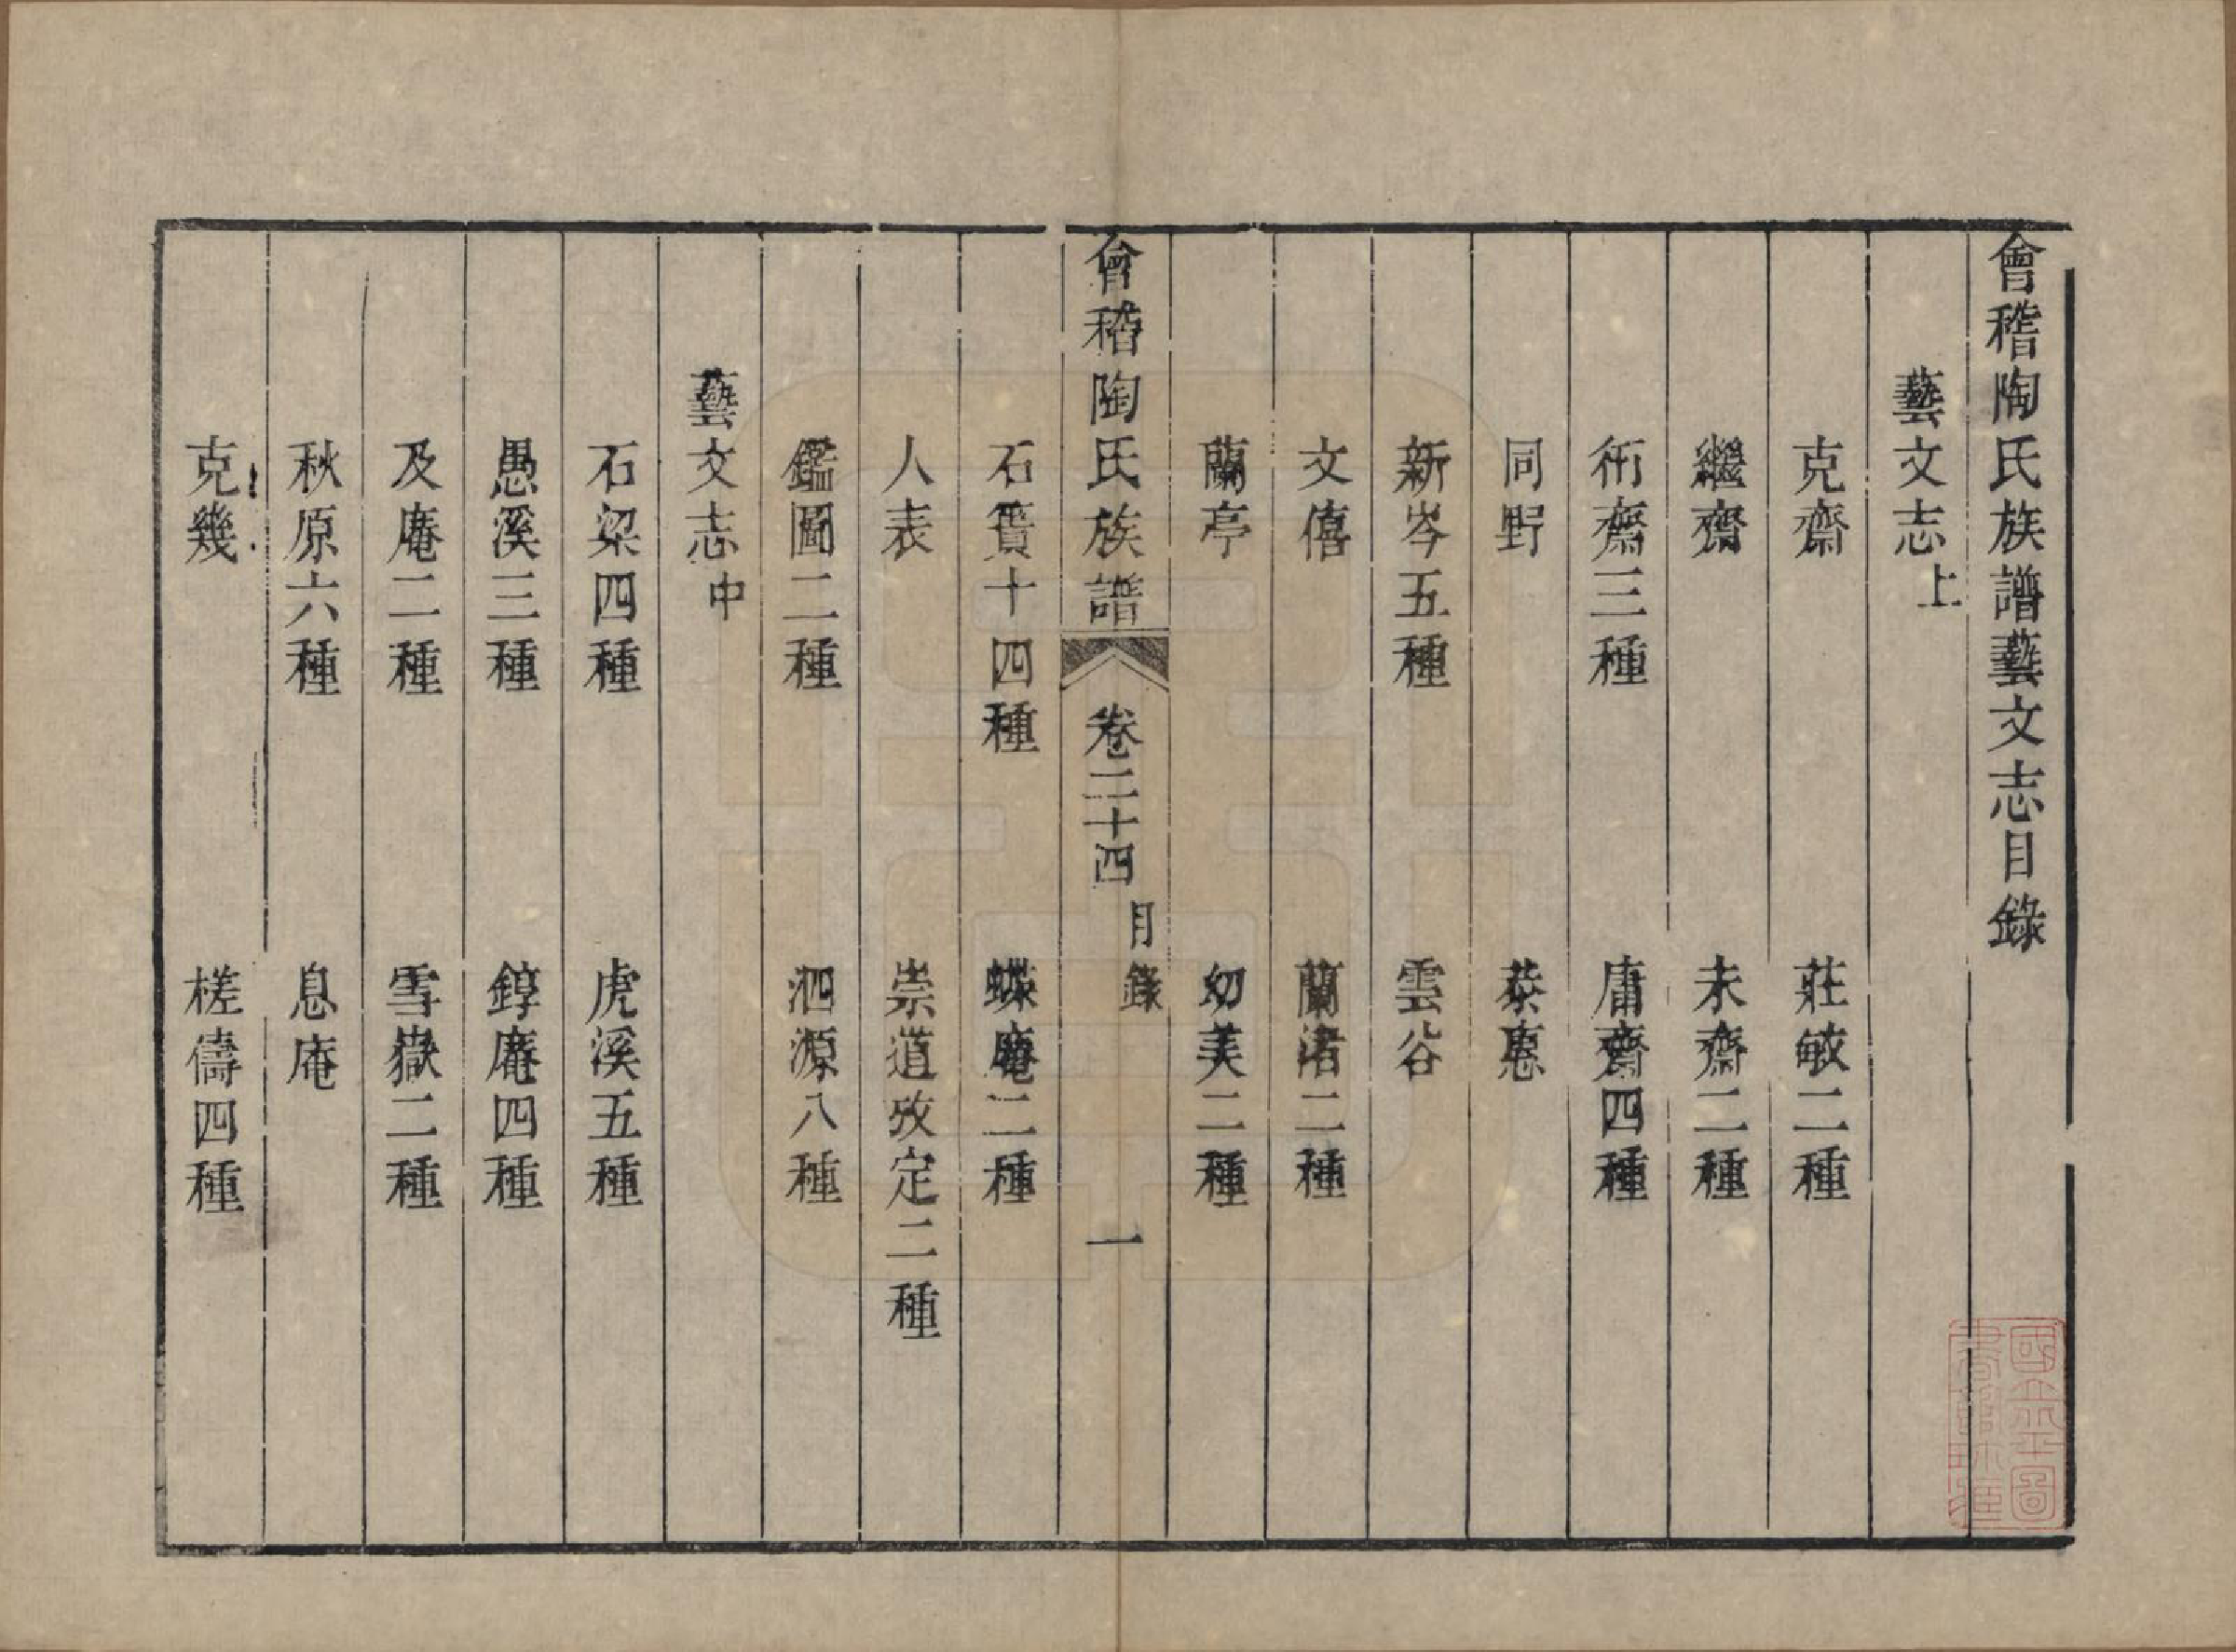 會稽陶氏族譜藝文志目錄
藝文志上
克齋 莊敏二種
繼齋 未齋二種
衎齋三種 庸齋四種
同野 恭惠
新岑五種 雲谷
文僖 蘭渚二種
蘭亭 幼美二種
會稽陶氏族譜 卷二十四 目錄 一
石簣十四種 蝶庵二種
人表 崇道攷定二種
鑑圖二種 泗源八種
藝文志中
石梁四種 虎溪五種
愚溪三種 錞庵四種
及庵二種 雪嶽二種
秋原六種 息庵
克幾 槎儔四種